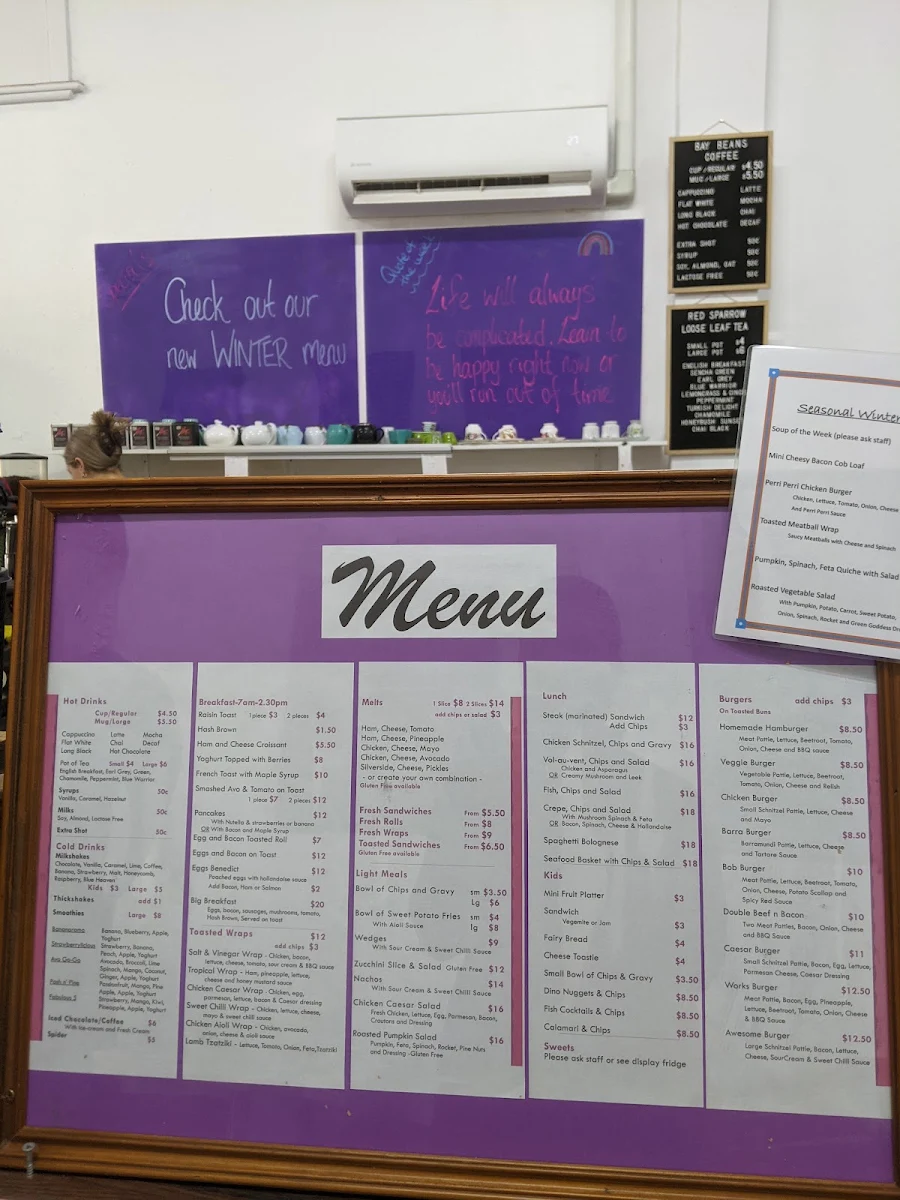 Check out our
new WINTER menu
Quote of
the week
Life will always
be complicated. Learn to
be happy right now or
you'll run out of time
27
BAY BEANS
COFFEE
CUP/REGULAR $4.50
MUG/LARGE $5.50
CAPPUCCINO LATTE
FLAT WHITE MOCHA
LONG BLACK CHAI
HOT CHOCOLATE DECAF
EXTRA SHOT 50¢
SYRUP 50¢
SOY, ALMOND, OAT 50¢
LACTOSE FREE 50¢
RED SPARROW
LOOSE LEAF TEA
SMALL POT $4
LARGE POT $6
ENGLISH BREAKFAST
SENCHA GREEN
EARL GREY
BLUE WARRIOR
LEMONGRASS & GING
PEPPERMINT
TURKISH DELIGHT
CHAMOMILE
HONEYBUSH SUNSE
CHAI BLACK
Seasonal Winter
Soup of the Week (please ask staff)
Mini Cheesy Bacon Cob Loaf
Perri Perri Chicken Burger
Chicken, Lettuce, Tomato, Onion, Cheese
And Perri Perri Sauce
Toasted Meatball Wrap
Saucy Meatballs with Cheese and Spinach
Pumpkin, Spinach, Feta Quiche with Salad
Roasted Vegetable Salad
With Pumpkin, Potato, Carrot, Sweet Potato,
Onion, Spinach, Rocket and Green Goddess Dre
Menu
Hot Drinks
Cup/Regular $4.50
Mug/Large $5.50
Cappuccino Latte Mocha
Flat White Chai Decaf
Long Black Hot Chocolate
Pot of Tea Small $4 Large $6
English Breakfast, Earl Grey, Green,
Chamomile, Peppermint, Blue Warrior
Syrups 50c
Vanilla, Caramel, Hazelnut
Milks 50c
Soy, Almond, Lactose Free
Extra Shot 50c
Cold Drinks
Milkshakes
Chocolate, Vanilla, Caramel, Lime, Coffee,
Banana, Strawberry, Malt, Honeycomb,
Raspberry, Blue Heaven
Kids $3 Large $5
Thickshakes add $1
Smoothies Large $8
Bananarama Banana, Blueberry, Apple,
Yoghurt
Strawberrylicious Strawberry, Banana,
Peach, Apple, Yoghurt
Avo Go-Go Avocado, Broccoli, Lime
Spinach, Mango, Coconut,
Ginger, Apple, Yoghurt
Pash n' Pine Passionfruit, Mango, Pine
Apple, Apple, Yoghurt
Fabulous 5 Strawberry, Mango, Kiwi,
Pineapple, Apple, Yoghurt
Iced Chocolate/Coffee $6
With Ice-cream and Fresh Cream
Spider $5
Breakfast-7am-2.30pm
Raisin Toast 1 piece $3 2 pieces $4
Hash Brown $1.50
Ham and Cheese Croissant $5.50
Yoghurt Topped with Berries $8
French Toast with Maple Syrup $10
Smashed Avo & Tomato on Toast
1 piece $7 2 pieces $12
Pancakes $12
With Nutella & strawberries or banana
OR With Bacon and Maple Syrup
Egg and Bacon Toasted Roll $7
Eggs and Bacon on Toast $12
Eggs Benedict $12
Poached eggs with hollandaise sauce
Add Bacon, Ham or Salmon $2
Big Breakfast $20
Eggs, bacon, sausages, mushrooms, tomato,
Hash Brown, Served on toast
Toasted Wraps $12
add chips $3
Salt & Vinegar Wrap - Chicken, bacon,
lettuce, cheese, tomato, sour cream & BBQ sauce
Tropical Wrap - Ham, pineapple, lettuce,
cheese and honey mustard sauce
Chicken Caesar Wrap - Chicken, egg,
parmesan, lettuce, bacon & Caesar dressing
Sweet Chilli Wrap - Chicken, lettuce, cheese,
mayo & sweet chilli sauce
Chicken Aioli Wrap - Chicken, avocado,
onion, cheese & aioli sauce
Lamb Tzatziki - Lettuce, Tomato, Onion, Feta, Tzatziki
Melts 1 Slice $8 2 Slices $14
add chips or salad $3
Ham, Cheese, Tomato
Ham, Cheese, Pineapple
Chicken, Cheese, Mayo
Chicken, Cheese, Avocado
Silverside, Cheese, Pickles
- or create your own combination -
Gluten Free available
Fresh Sandwiches From $5.50
Fresh Rolls From $8
Fresh Wraps From $9
Toasted Sandwiches From $6.50
Gluten Free available
Light Meals
Bowl of Chips and Gravy sm $3.50
Lg $6
Bowl of Sweet Potato Fries sm $4
With Aioli Sauce lg $8
Wedges $9
With Sour Cream & Sweet Chilli Sauce
Zucchini Slice & Salad Gluten Free $12
Nachos $14
With Sour Cream & Sweet Chilli Sauce
Chicken Caesar Salad $16
Fresh Chicken, Lettuce, Egg, Parmesan, Bacon,
Croutons and Dressing
Roasted Pumpkin Salad $16
Pumpkin, Feta, Spinach, Rocket, Pine Nuts
and Dressing -Gluten Free
Lunch
Steak (marinated) Sandwich $12
Add Chips $3
Chicken Schnitzel, Chips and Gravy $16
Val-au-vent, Chips and Salad $16
Chicken and Asparagus
OR Creamy Mushroom and Leek
Fish, Chips and Salad $16
Crepe, Chips and Salad $16
With Mushroom Spinach & Feta
OR Bacon, Spinach, Cheese & Hollandaise
Spaghetti Bolognese $18
Seafood Basket with Chips & Salad $18
Kids
Mini Fruit Platter $3
Sandwich
Vegemite or Jam $3
Fairy Bread $4
Cheese Toastie $4
Small Bowl of Chips & Gravy $3.50
Dino Nuggets & Chips $8.50
Fish Cocktails & Chips $8.50
Calamari & Chips $8.50
Sweets
Please ask staff or see display fridge
Burgers add chips $3
On Toasted Buns
Homemade Hamburger $8.50
Meat Pattie, Lettuce, Beetroot, Tomato,
Onion, Cheese and BBQ sauce
Veggie Burger $8.50
Vegetable Pattie, Lettuce, Beetroot,
Tomato, Onion, Cheese and Relish
Chicken Burger $8.50
Small Schnitzel Pattie, Lettuce, Cheese
and Mayo
Barra Burger $8.50
Barramundi Pattie, Lettuce, Cheese
and Tartare Sauce
Bob Burger $10
Meat Pattie, Lettuce, Beetroot, Tomato,
Onion, Cheese, Potato Scallop and
Spicy Red Sauce
Double Beef n Bacon $10
Two Meat Patties, Bacon, Onion, Cheese
and BBQ Sauce
Caesar Burger $11
Small Schnitzel Pattie, Bacon, Egg, Lettuce,
Parmesan Cheese, Caesar Dressing
Works Burger $12.50
Meat Pattie, Bacon, Egg, Pineapple,
Lettuce, Beetroot, Tomato, Onion, Cheese
& BBQ Sauce
Awesome Burger $12.50
Large Schnitzel Pattie, Bacon, Lettuce,
Cheese, SourCream & Sweet Chilli Sauce